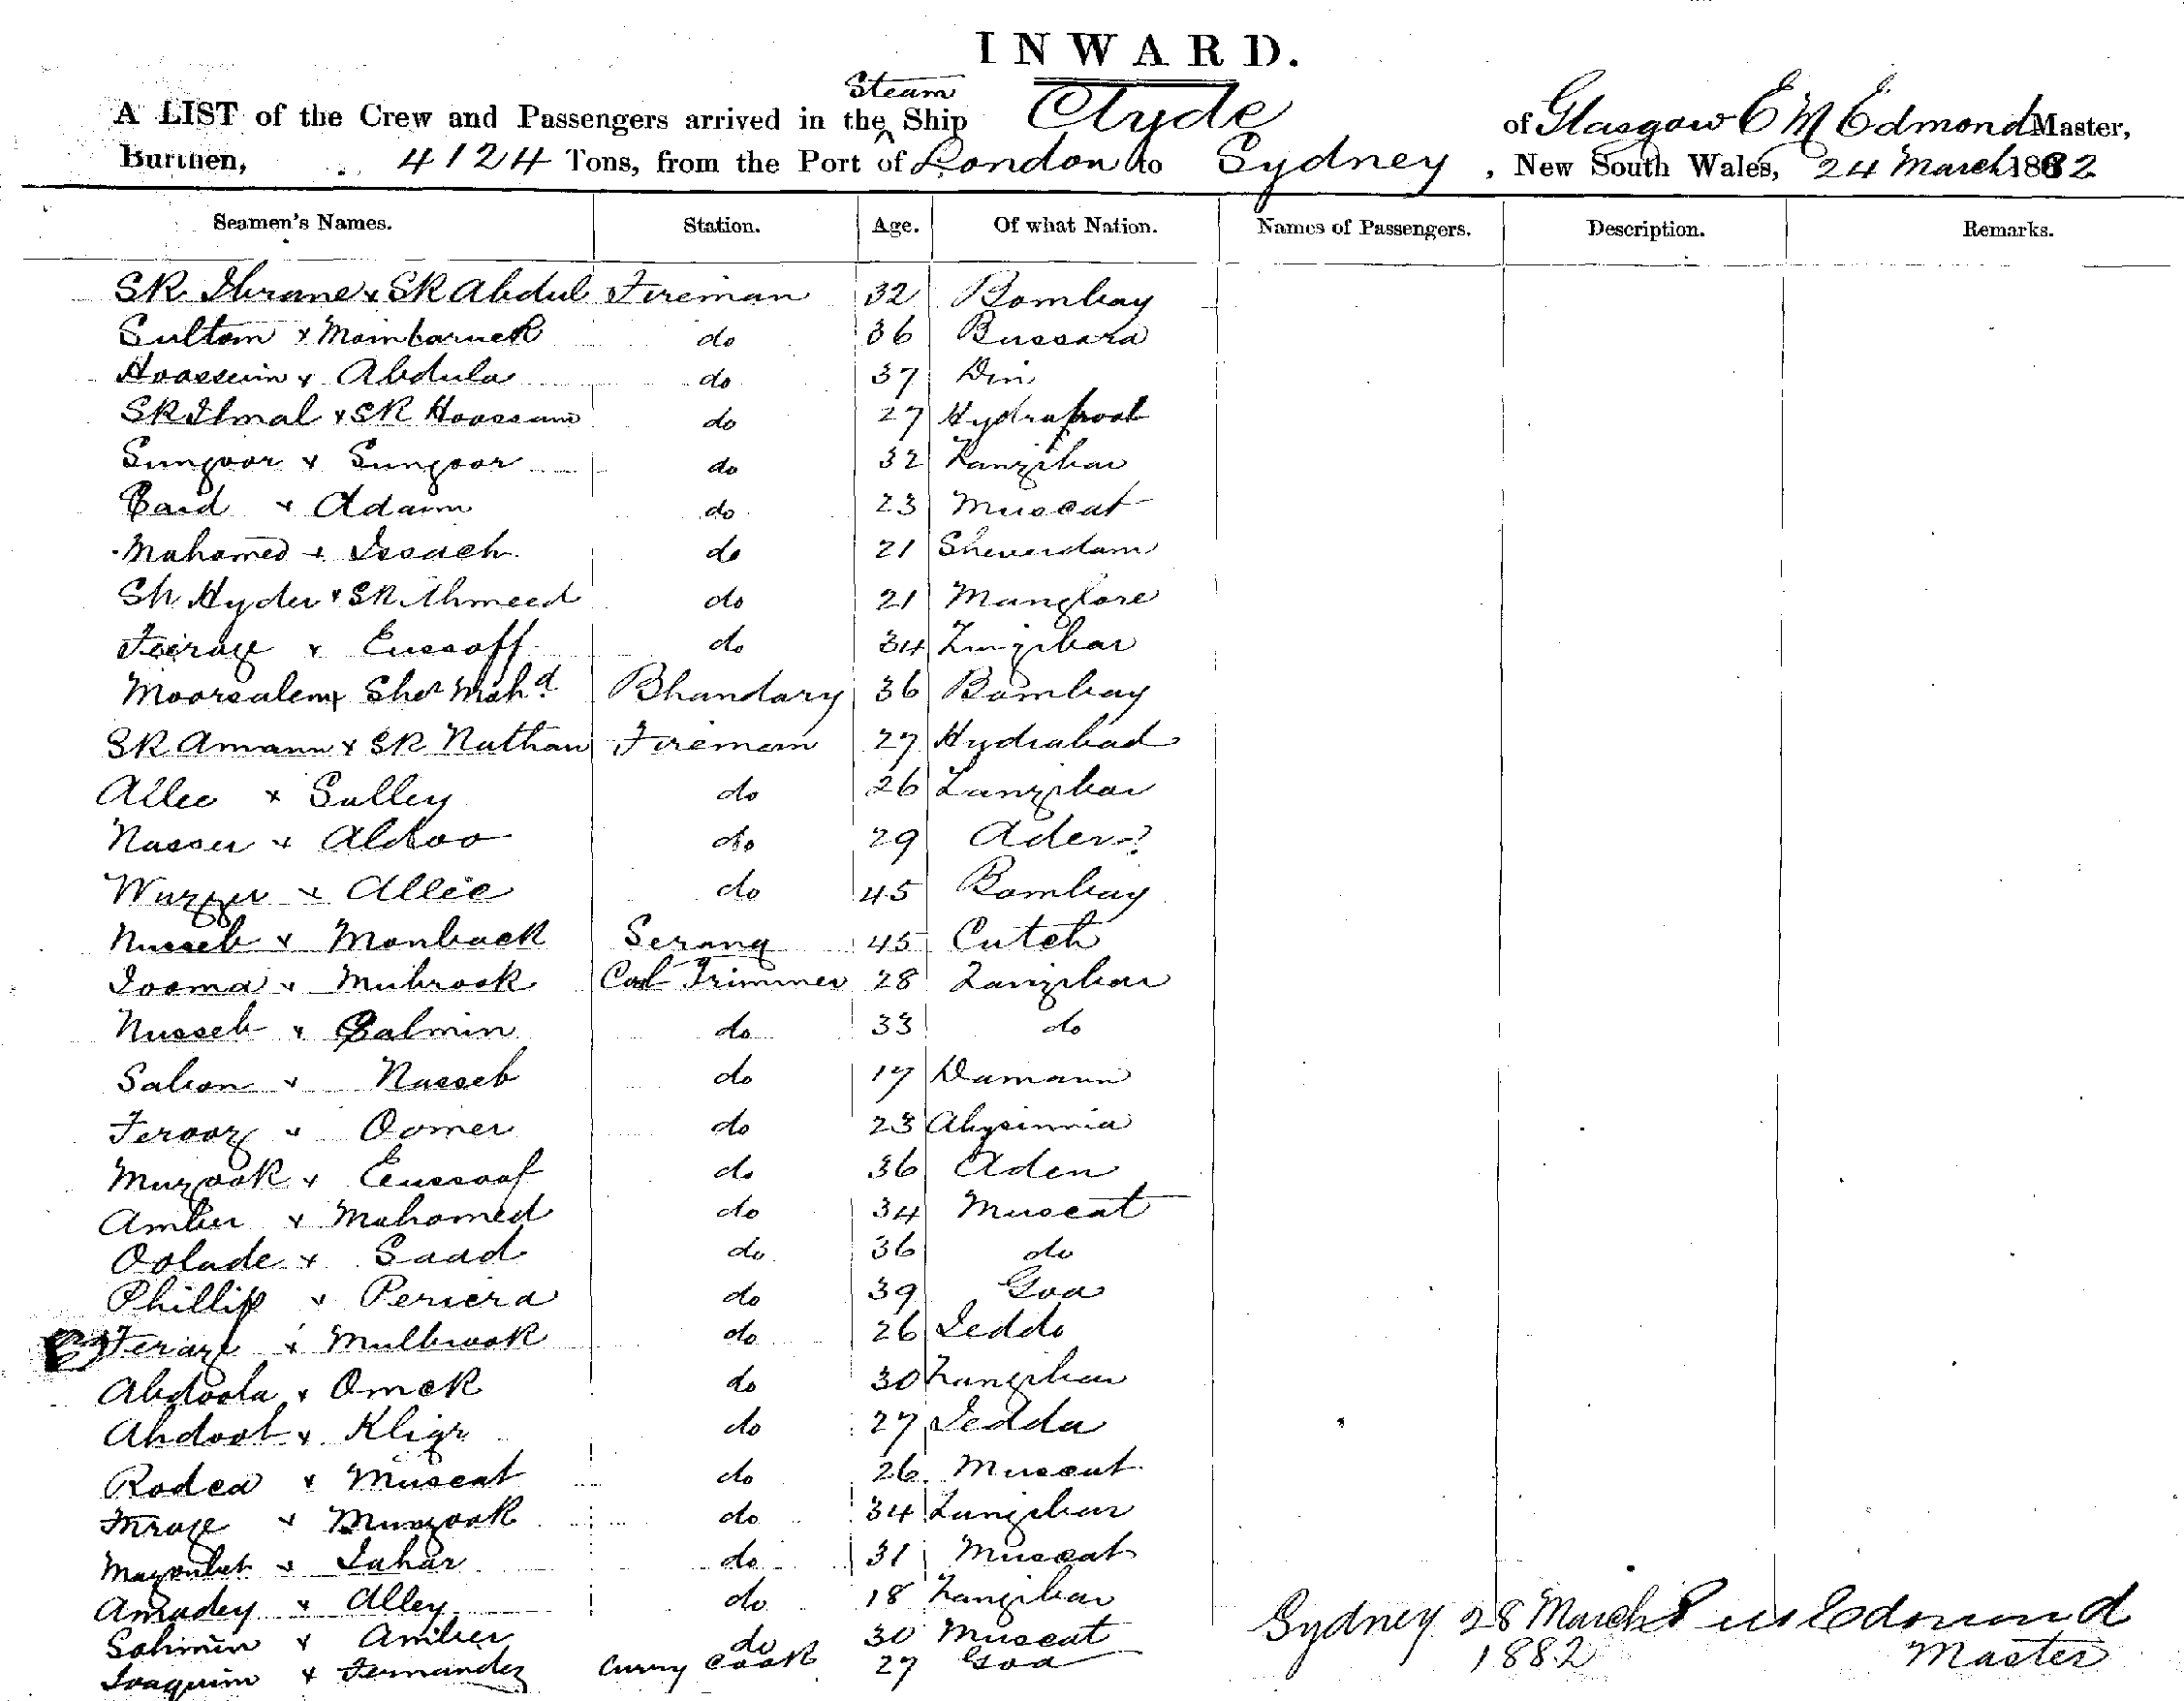 INWARD.
A LIST of the Crew and Passengers arrived in the Steam Ship Clyde of Glasgow E M Edmond Master,
Burthen, 4124 Tons, from the Port of London to Sydney, New South Wales, 24 March 1882
Seamen's Names. Station. Age. Of what Nation. Names of Passengers. Description. Remarks.
SK Ibrane x SK Abdul Fireman 32 Bombay
Sultan x Mombaruck do 36 Bussara
Hoassein x Abdula do 37 Diu
SK Ilmal x SK Hoossam do 27 Hydrapoot
Sungoor x Sungoor do 32 Zanzibar
Said x Adam do 23 Muscat
Mahomed x Issach do 21
Sh. Hyder x SK Ahmeed do 21 Manglore
x Eussoff do 34 Zinzibar
Moorsalem x Sher Mahd. Bhandary 36 Bombay
SK Amann x SK Nathan Fireman 27 Hydrabad
Allee x Salley do 26 Zanzibar
Nasser x Abdoo do 29 Aden
x Allie do 45 Bombay
Nusseb x Monback Serang 45 Cutch
Jooma x Mubrook Coal Trimmer 28 Zanzibar
Nusseb x Salmin do 33 do
x Nasseb do 17 Damann
Ferooz x Oomer do 23 Abysinnia
Murzook x Eussoof do 36 Aden
Amber x Mahomed do 34 Muscat
Oolade x Saad do 36 do
Phillip x Periera do 39 Goa
x Mulbrook do 26 Jeddo
Abdoola x Omek do 30 Zanzibar
Abdool x do 27 Jedda
x Muscat do 26 Muscat
x Murzook do 34 Zanzibar
x do 31 Muscat
Amadey x Alley do 18 Zanzibar
Solimin x Amber do 30 Muscat
Joaquim x Fernandez Curry Cook 27 Goa
Sydney 28 March Edmond
1882 Master